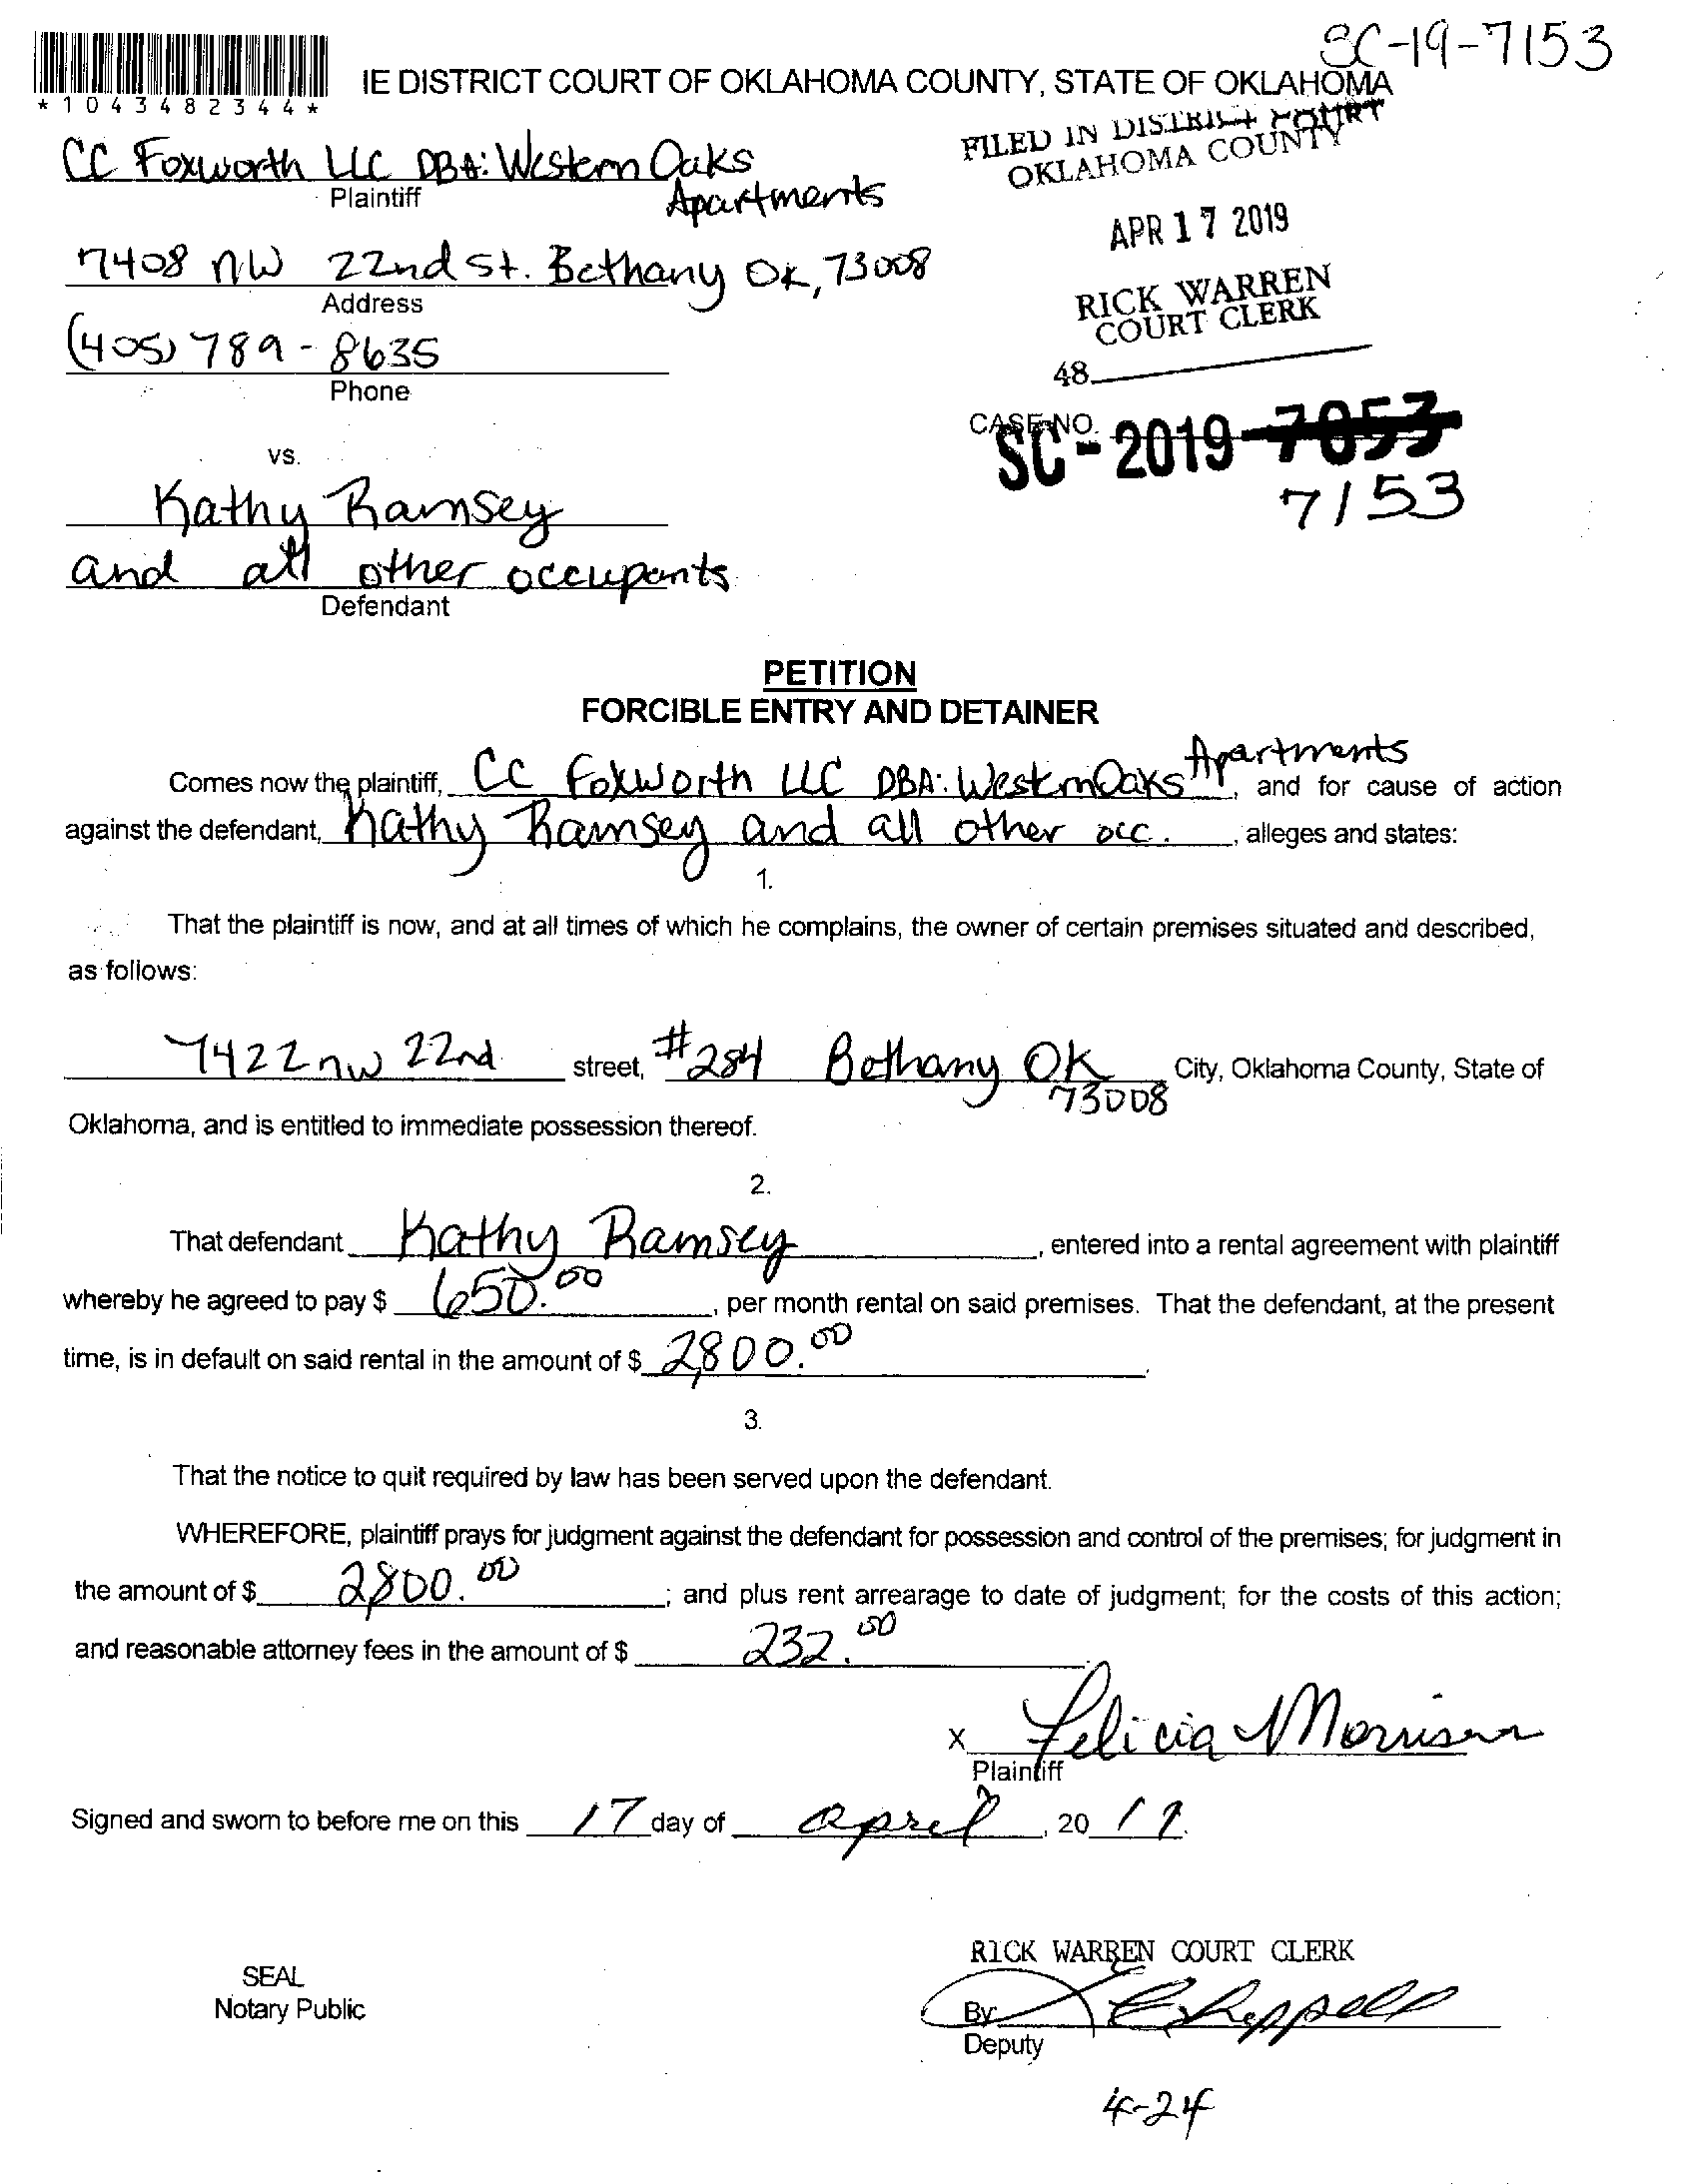 SC-19-7153
*1043482344*
IE DISTRICT COURT OF OKLAHOMA COUNTY, STATE OF OKLAHOMA
FILED IN DISTRICT COURT
OKLAHOMA COUNTY
CC Foxworth LLC DBA: Western Oaks
Apartments
Plaintiff
APR 17 2019
7408 NW 22nd St. Bethany OK, 73008
Address
RICK WARREN
COURT CLERK
(405) 789-8635
Phone
48
CASE NO.
SC-2019-7053
7153
vs.
Kathy Ramsey
and all other occupants
Defendant
PETITION
FORCIBLE ENTRY AND DETAINER
Comes now the plaintiff, CC Foxworth LLC DBA: Western Oaks Apartments, and for cause of action
against the defendant, Kathy Ramsey and all other occ. , alleges and states:
1.
That the plaintiff is now, and at all times of which he complains, the owner of certain premises situated and described,
as follows:
7422 nw 22nd street, #284 Bethany OK 73008 City, Oklahoma County, State of
Oklahoma, and is entitled to immediate possession thereof.
2.
That defendant Kathy Ramsey, entered into a rental agreement with plaintiff
whereby he agreed to pay $ 650.00, per month rental on said premises. That the defendant, at the present
time, is in default on said rental in the amount of $ 2,800.00.
3.
That the notice to quit required by law has been served upon the defendant.
WHEREFORE, plaintiff prays for judgment against the defendant for possession and control of the premises; for judgment in
the amount of $ 2800.00; and plus rent arrearage to date of judgment; for the costs of this action;
and reasonable attorney fees in the amount of $ 232.00.
x Felicia Morrison
Plaintiff
Signed and sworn to before me on this 17 day of april, 2019.
RICK WARREN COURT CLERK
SEAL
Notary Public
By
Deputy
4-24